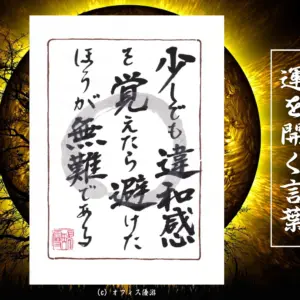 少しでも違和感
を覚えたら避けた
ほうが無難である
運を開く言葉
(c) オフィス優沼